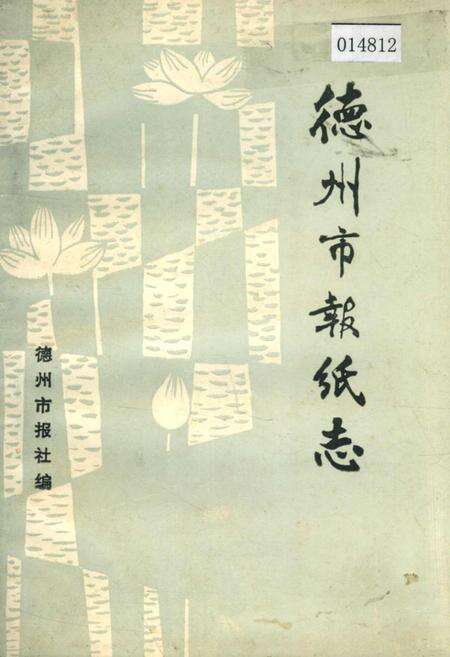 014812
德州市報紙志
德州市报社编